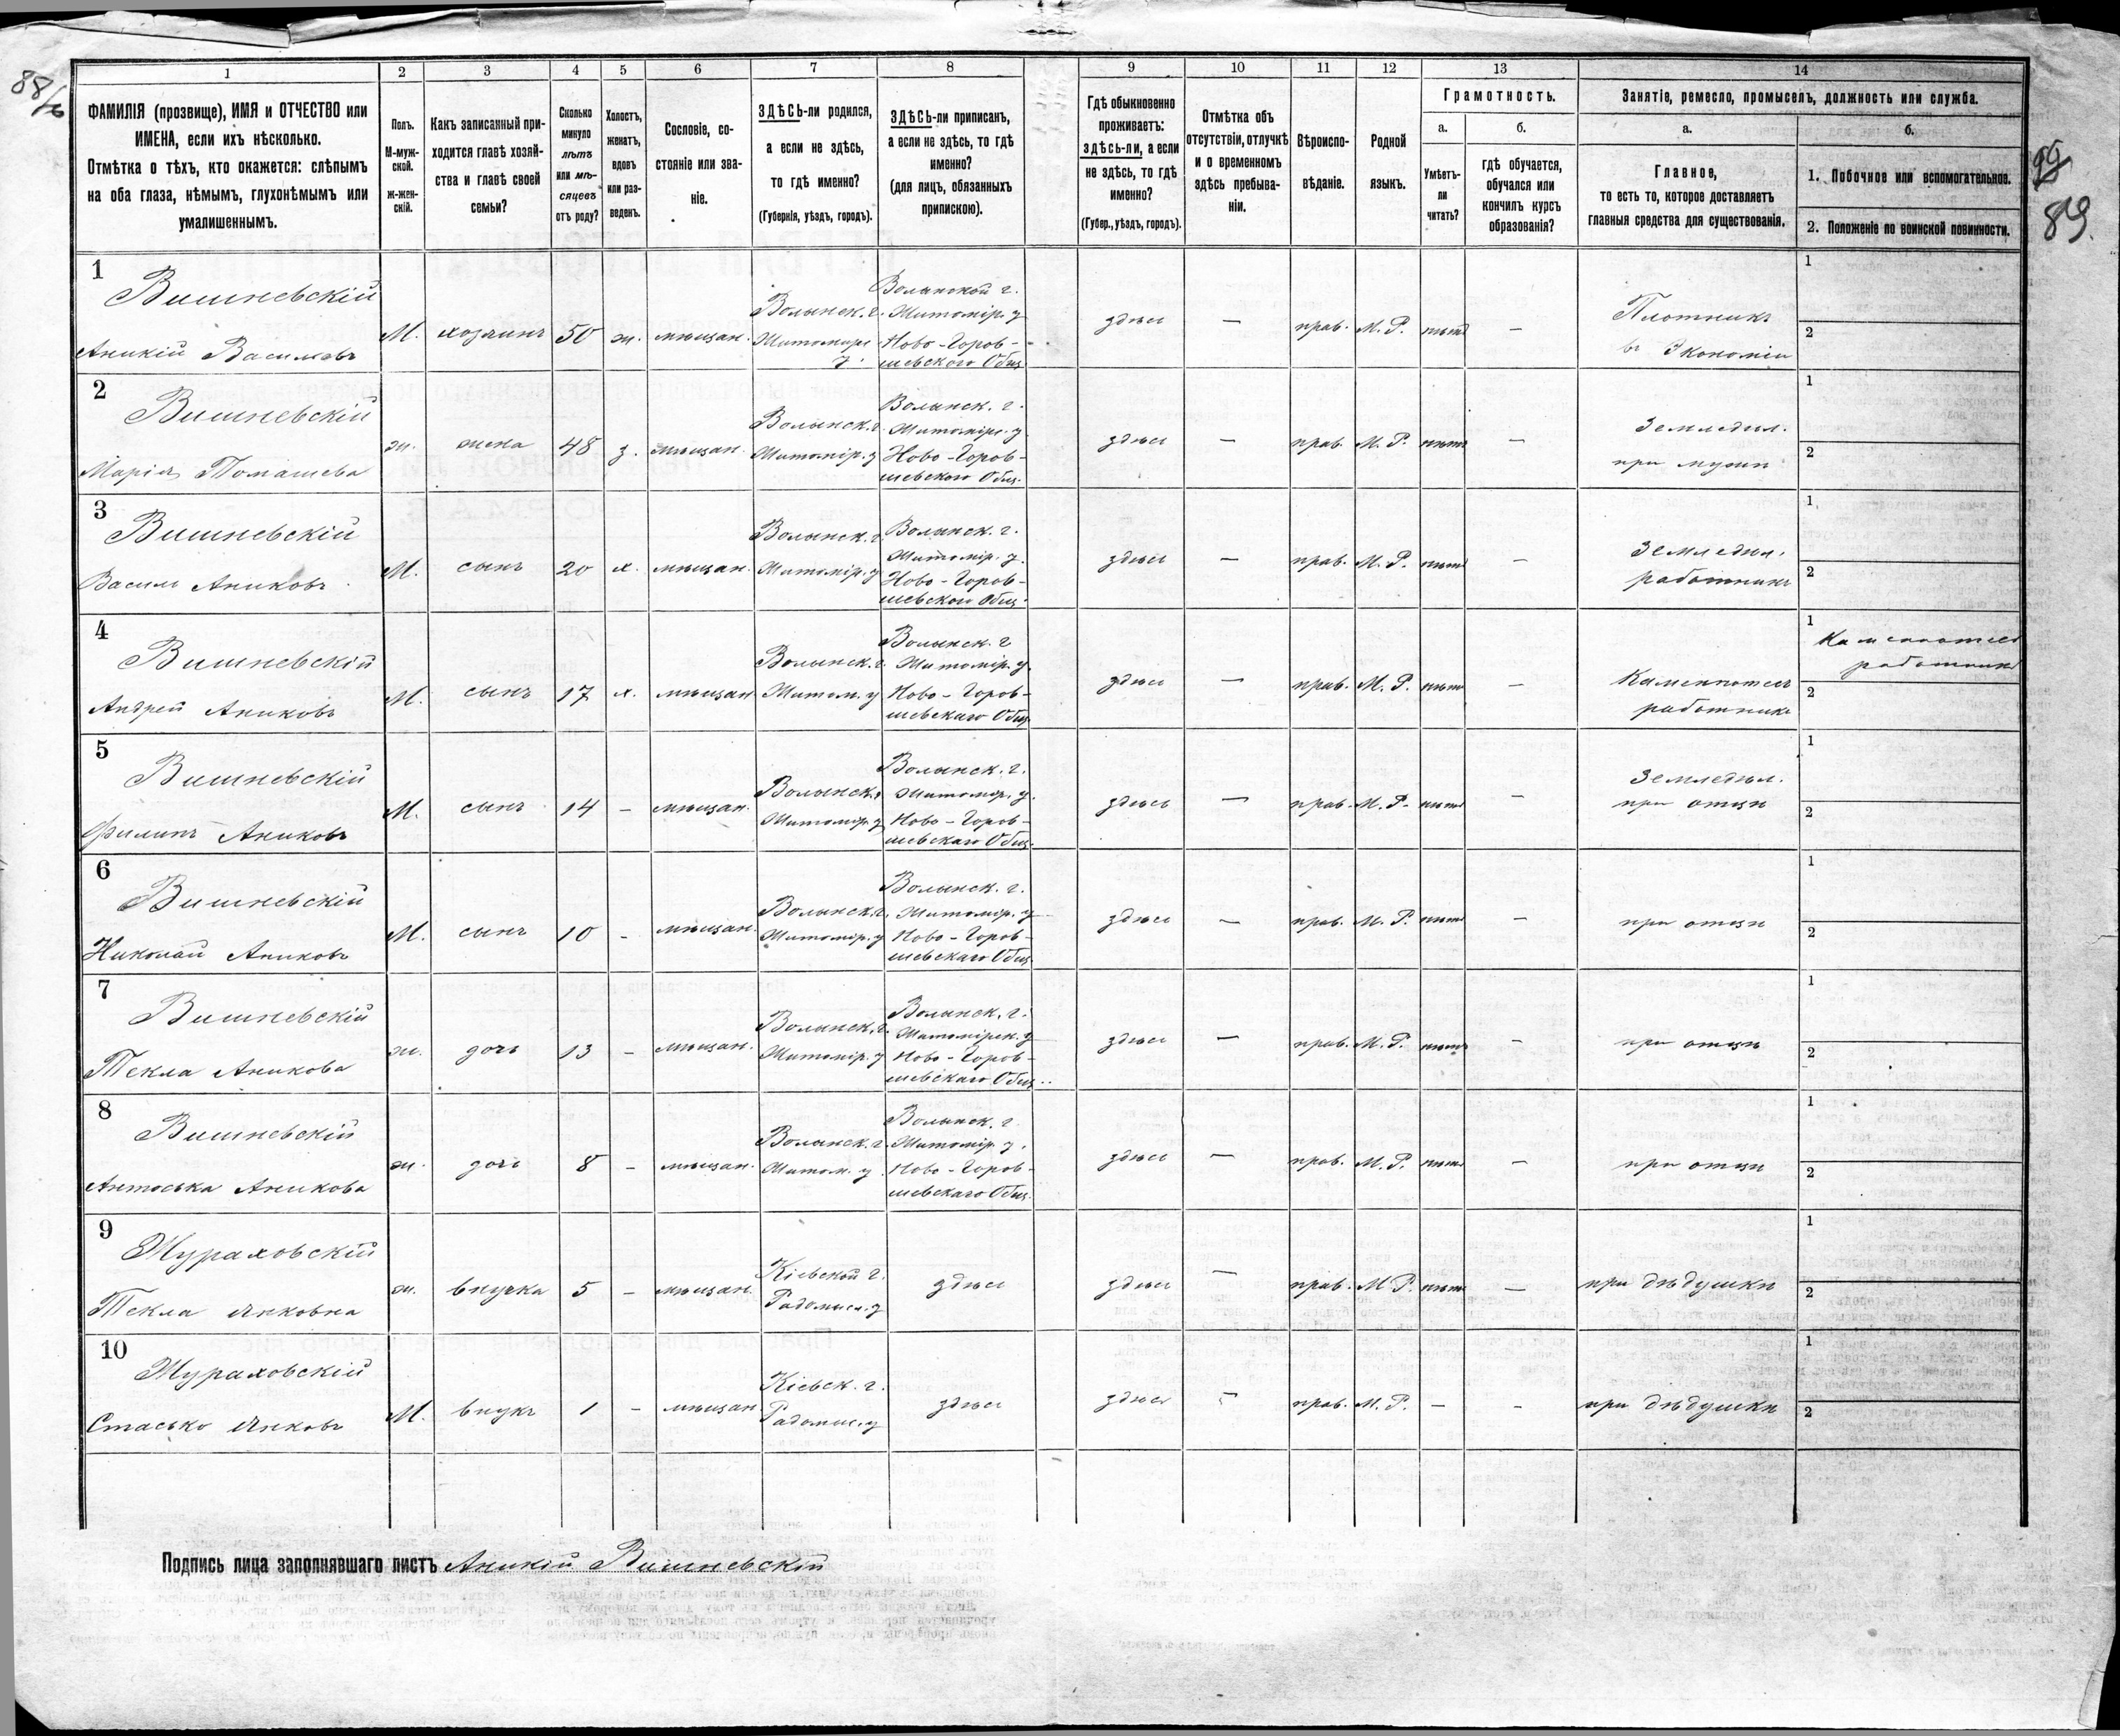 88/в
99
89.
1
2
3
4
5
6
7
8
9
10
11
12
13
14
ФАМИЛІЯ (прозвище), ИМЯ и ОТЧЕСТВО или
ИМЕНА, если ихъ нѣсколько.
Отмѣтка о тѣхъ, кто окажется: слѣпымъ
на оба глаза, нѣмымъ, глухонѣмымъ или
умалишеннымъ.
Полъ.
М-муж-
ской.
ж-жен-
скій.
Какъ записанный при-
ходится главѣ хозяй-
ства и главѣ своей
семьи?
Сколько
минуло
лѣтъ
или мѣ-
сяцевъ
отъ роду?
Холостъ,
женатъ,
вдовъ
или раз-
веденъ.
Сословіе, со-
стояніе или зва-
ніе.
ЗДѢСЬ-ли родился,
а если не здѣсь,
то гдѣ именно?
(Губернія, уѣздъ, городъ).
ЗДѢСЬ-ли приписанъ,
а если не здѣсь, то гдѣ
именно?
(для лицъ, обязанныхъ
припискою).
Гдѣ обыкновенно
проживаетъ:
здѣсь-ли, а если
не здѣсь, то гдѣ
именно?
(Губер., уѣздъ, городъ).
Отмѣтка объ
отсутствіи, отлучкѣ
и о временномъ
здѣсь пребыва-
ніи.
Вѣроиспо-
вѣданіе.
Родной
языкъ.
Грамотность.
а.
Умѣетъ-
ли
читать?
б.
гдѣ обучается,
обучался или
кончилъ курсъ
образованія?
Занятіе, ремесло, промыселъ, должность или служба.
а.
Главное,
то есть то, которое доставляетъ
главныя средства для существованія.
б.
1. Побочное или вспомогательное.
2. Положеніе по воинской повинности.
1
Вишневскій
Аникій Васильевъ
М.
хозяинъ
50
ж.
мѣщан.
Волынск. г.
Житомирс
у.
Волынской г.
Житомір. у
Ново-Горов-
шевского Общ
здѣсь
—
прав.
М. Р.
нѣтъ
—
Плотникъ
въ Экономіи
1
2
2
Вишневскій
Марія Томашева
ж.
жена
48
з.
мѣщан.
Волынск. г.
Житомір. у
Волынск. г.
Житомірс. у.
Ново-Горов-
шевского Общ.
здѣсь
—
прав.
М. Р.
нѣтъ
—
Земледѣл.
при мужѣ
1
2
3
Вишневскій
Василь Аниковъ
М.
сынъ
20
х.
мѣщан.
Волынск. г.
Житомір. у
Волынск. г.
Житомір. у.
Ново-Горов-
шевского Общ.
здѣсь
—
прав.
М. Р.
нѣтъ
—
Земледѣл.
работникъ
1
2
4
Вишневскій
Андрей Аниковъ
М.
сынъ
17
х.
мѣщан
Волынск. г.
Житом. у
Волынск. г
Житомір. у.
Ново-Горов-
шевскаго Общ
здѣсь
—
прав.
М. Р.
нѣтъ
—
Каменнотес
работникъ
1
Каменнотес
работникъ
2
5
Вишневскій
Филипъ Аниковъ
М.
сынъ
14
–
мѣщан.
Волынск. г
Житомір. у
Волынск. г.
Житомір. у.
Ново-Горов-
шевскаго Общ.
здѣсь
—
прав.
М. Р.
нѣтъ
—
Земледѣл.
при отцѣ
1
2
6
Вишневскій
Николай Аниковъ
М.
сынъ
10
-
мѣщан.
Волынск. г.
Житомір. у
Волынск. г.
Житомір. у
Ново-Горов-
шевскаго Общ.
здѣсь
—
прав.
М. Р.
нѣтъ
—
при отцѣ
1
2
7
Вишневскій
Текла Аникова
ж.
дочь
13
–
мѣщан.
Волынск. г.
Житомір. у
Волынск. г.
Житомірск. у
Ново-Горов-
шевскаго Общ..
здѣсь
—
прав.
М. Р.
нѣтъ
—
при отцѣ
1
2
8
Вишневскій
Антоська Аникова
ж.
дочь
8
–
мѣщан.
Волынск. г.
Житом. у.
Волынск. г
Житомір. у.
Ново-Горов-
шевскаго Общ.
здѣсь
—
прав.
М. Р.
нѣтъ
—
при отцѣ
1
2
9
Жураховскій
Текла Янковна
ж.
внучка
5
–
мѣщан.
Кіевской г.
Радомысл. у
здѣсь
здѣсь
—
прав.
М Р.
нѣтъ
—
при дѣдушкѣ
1
2
10
Жураховскій
Стасько Янковъ
М.
внукъ
1
–
мѣщан
Кіевск. г.
Радомыс. у
здѣсь
здѣсь
–
прав.
М. Р.
–
-
при дѣдушкѣ
1
2
Подпись лица заполнявшаго листъ Аникій Вишневскій